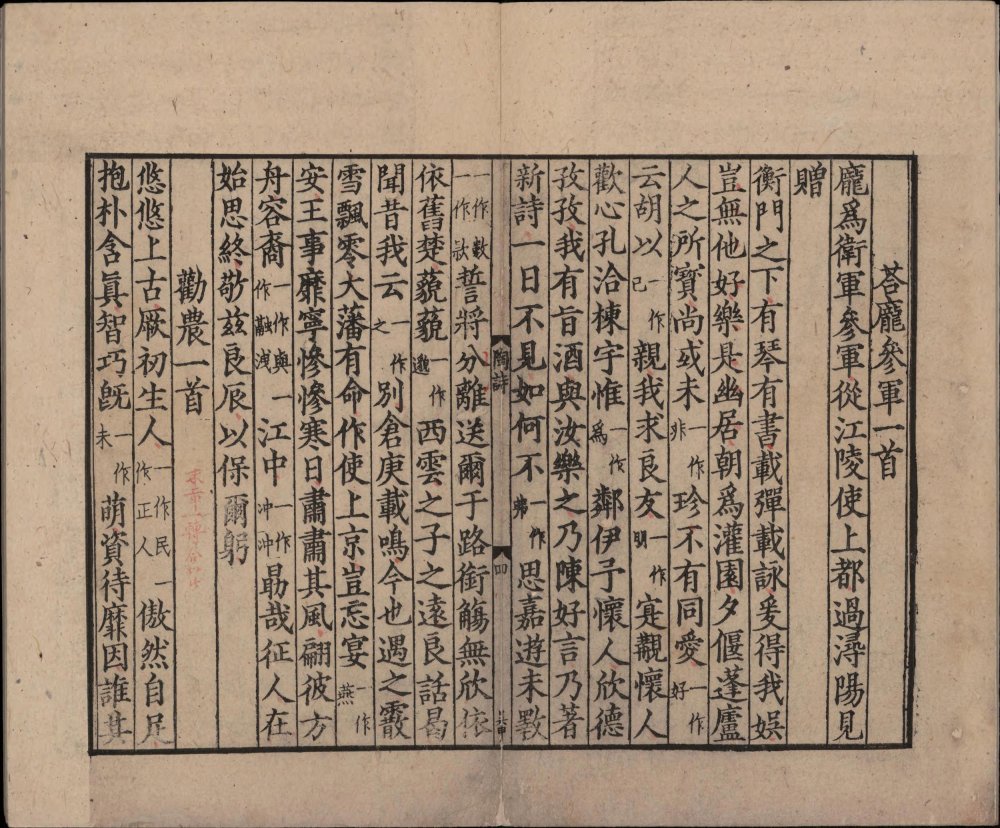 荅龐參軍一首
龐爲衛軍參軍從江陵使上都過潯陽見
贈
衡門之下有琴有書載彈載詠爰得我娛
豈無他好樂是幽居朝爲灌園夕偃蓬廬
人之所寶尚或未一作非珍不有同愛一作好
云胡以一作已親我求良友一作明寔覯懷人
歡心孔洽棟宇惟一作爲鄰伊予懷人欣德
孜孜我有旨酒與汝樂之乃陳好言乃著
新詩一日不見如何不一作弗思嘉遊未斁
一作數一作誓將分離送爾于路銜觴無欣依
依舊楚藐藐一作邈西雲之子之遠良話曷
聞昔我云一作之別倉庚載鳴今也遇之霰
雪飄零大藩有命作使上京豈忘宴一作燕
安王事靡寧慘慘寒日肅肅其風翩彼方
舟容裔一作與一作融洩江中一作沖沖勗哉征人在
始思終敬兹良辰以保爾躬
勸農一首
末章一轉合
悠悠上古厥初生人一作民一作正人傲然自足
抱朴含眞智巧旣一作未萌資待靡因誰其
陶詩
四